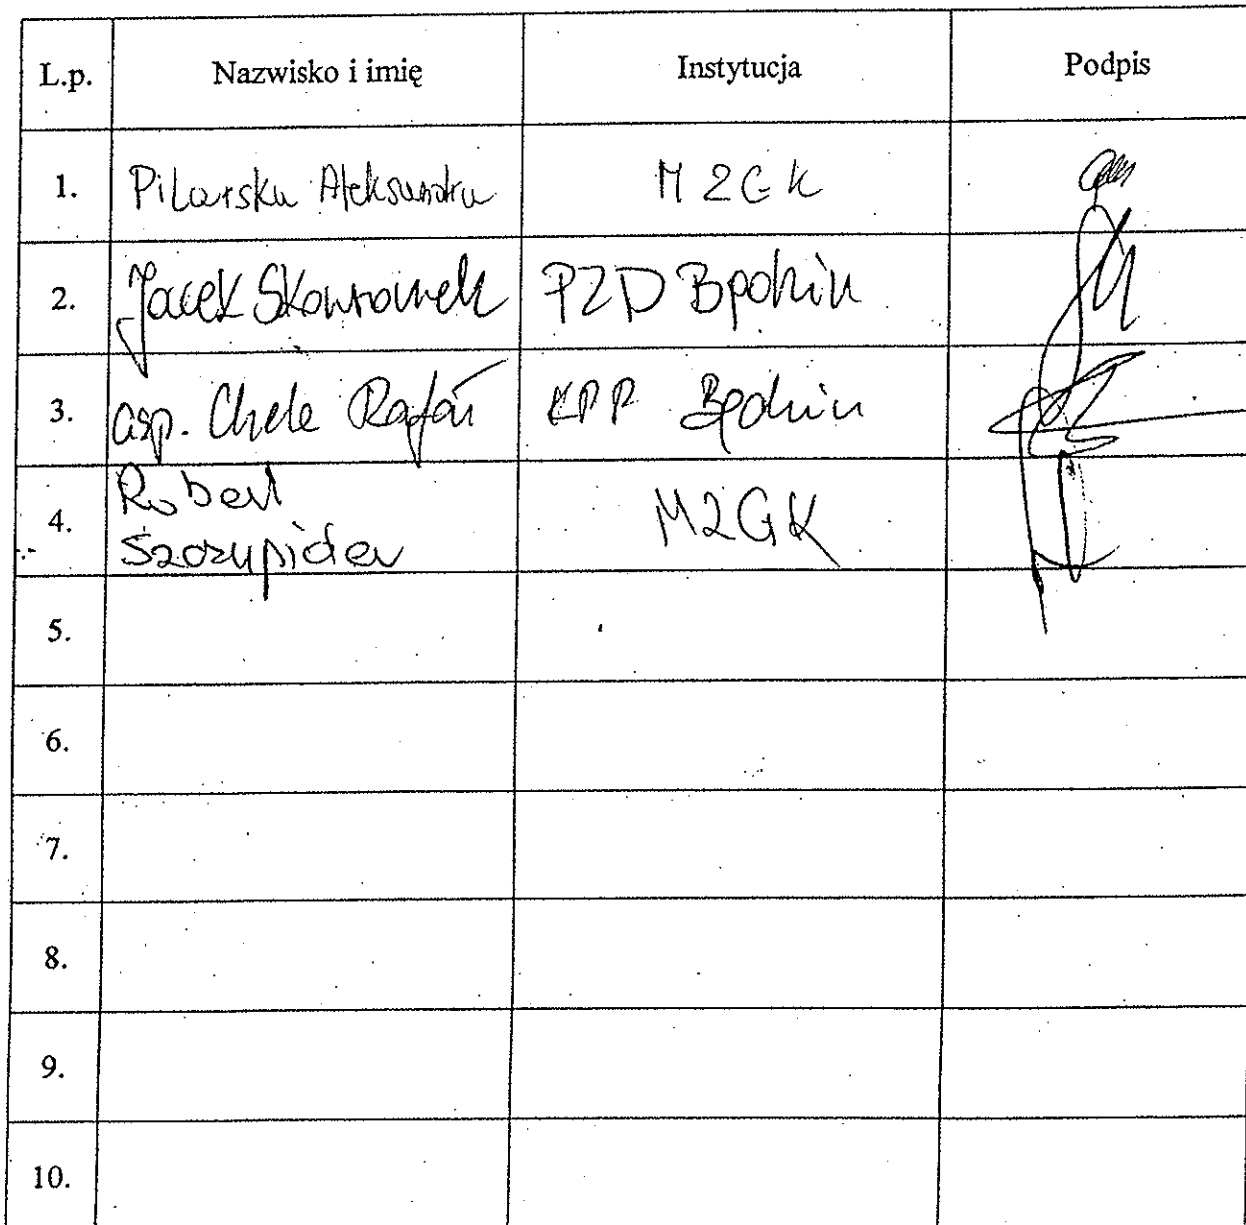 L.p. Nazwisko i imię Instytucja Podpis
1. Pilarska Aleksandra MZGK
2. Jacek Skowronek PZD Będzin
3. asp. Rafał KPP Będzin
4. Robert MZGK
5.
6.
7.
8.
9.
10.